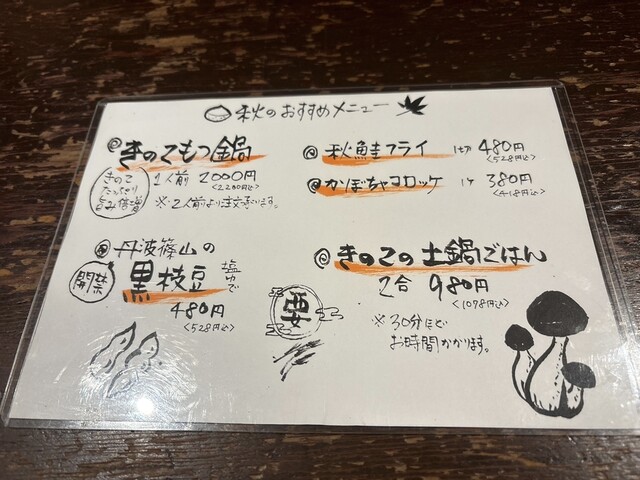 秋のおすすめメニュー
@きのこもつ鍋
きのこ
たっぷり
旨み倍増
1人前 2000円
<2200円込>
※2人前より注文承ります。
@丹波篠山の
開禁
黒枝豆 塩ゆで
480円
<528円込>
@秋鮭フライ 1切 480円
<528円込>
@かぼちゃコロッケ 1ケ 380円
<418円込>
@きのこの土鍋ごはん
2合 980円
<1078円込>
※30分ほど
お時間かかります。
要